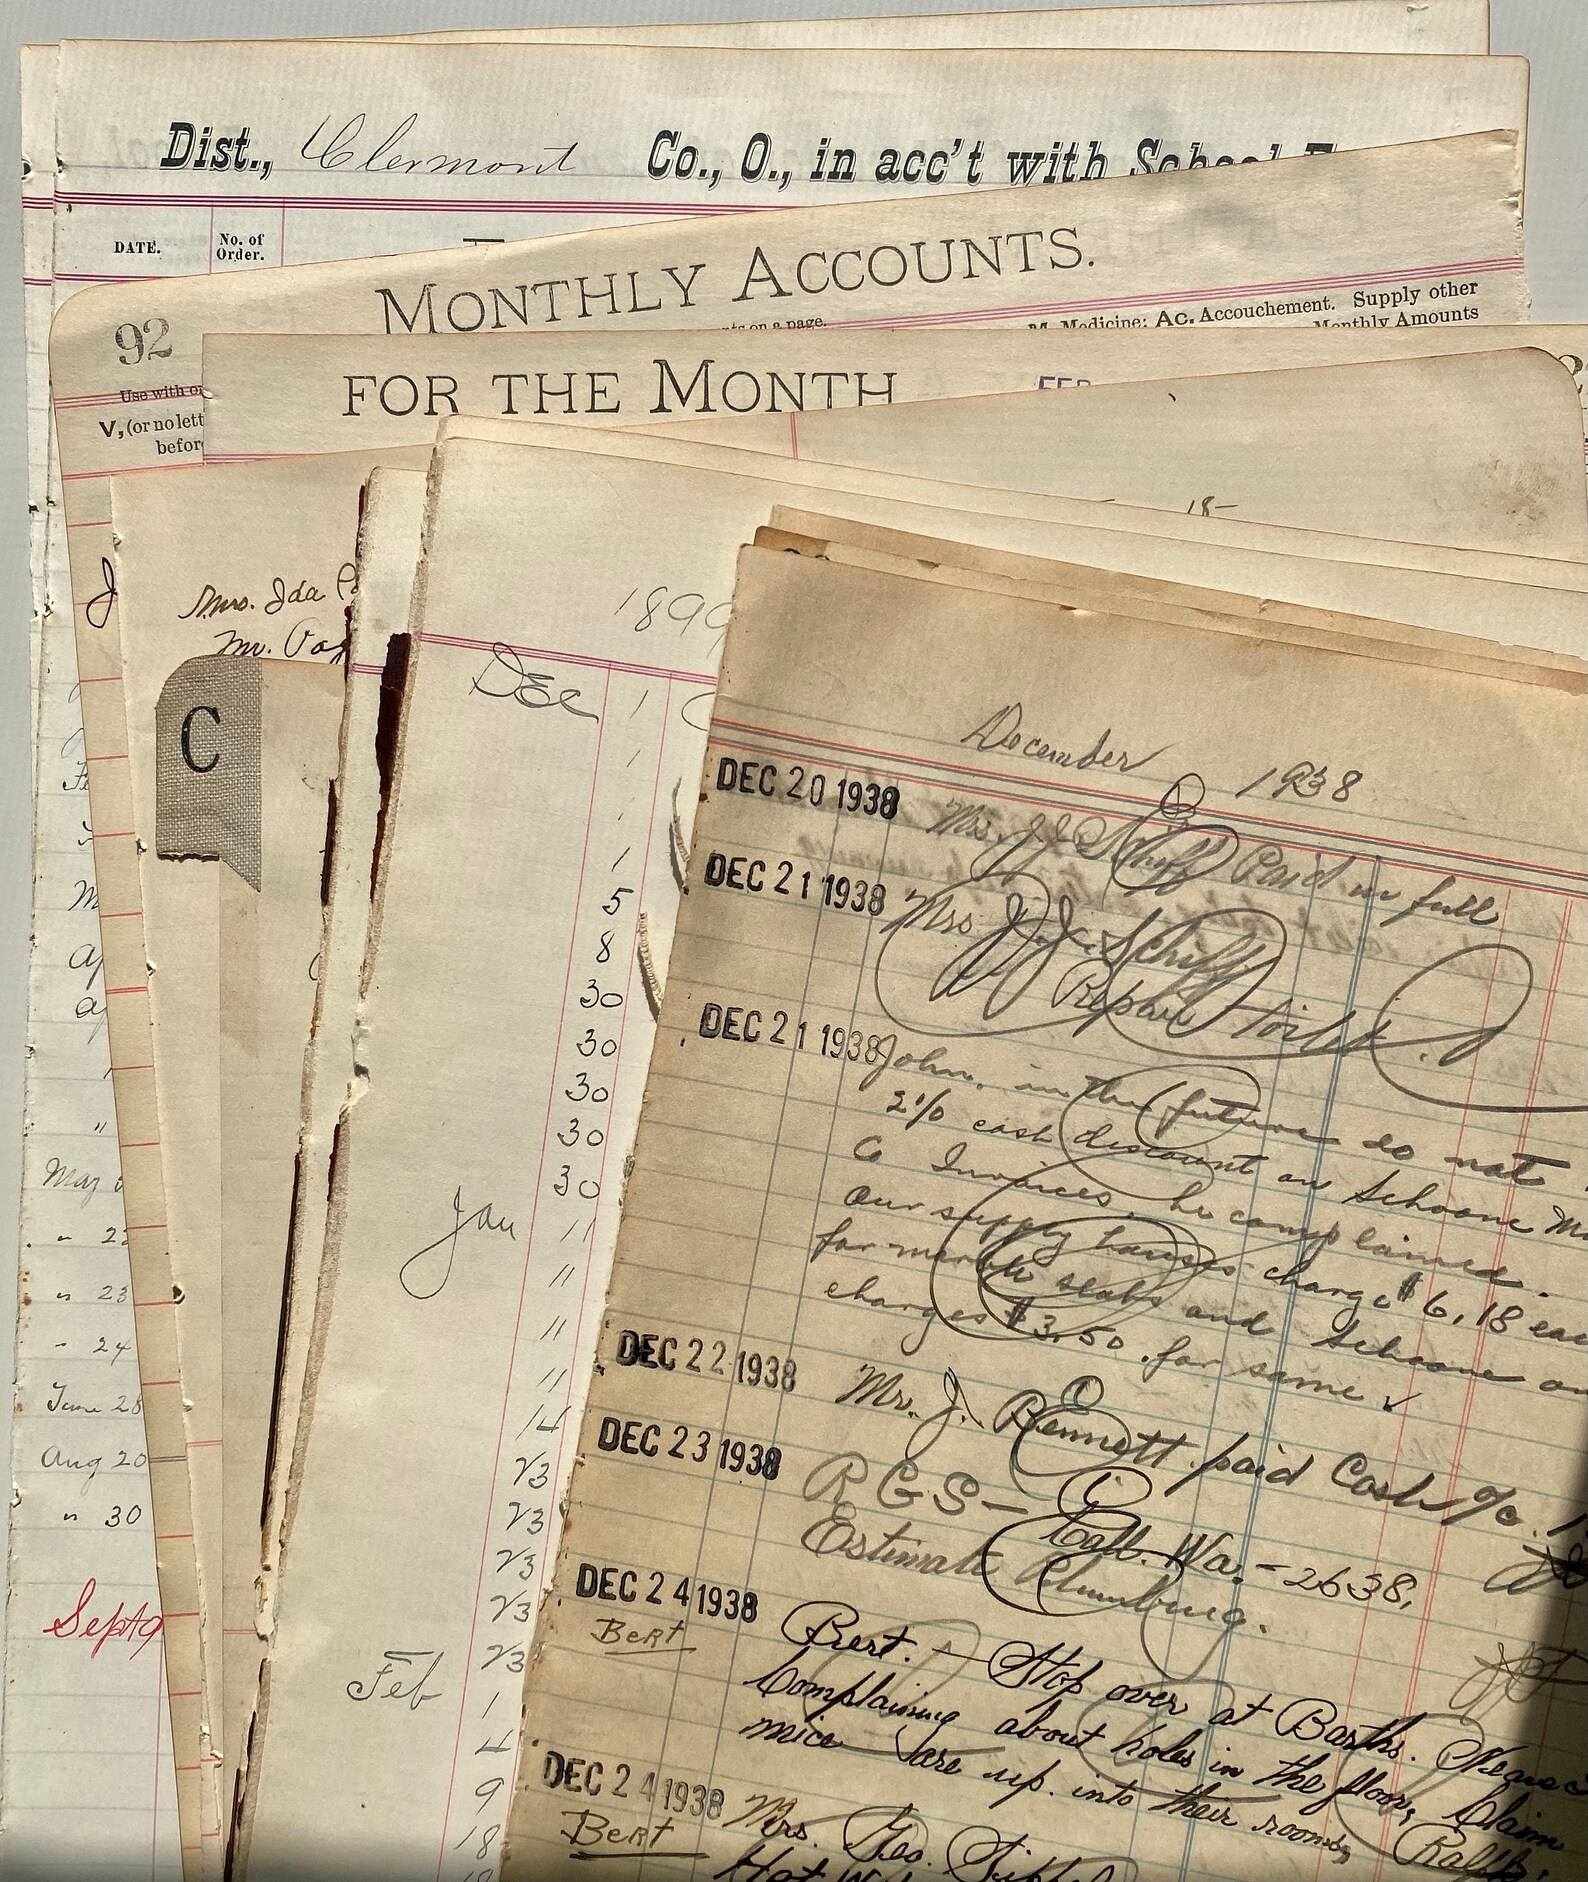 Dist., Clermont Co., O., in acc't with School
DATE.
No. of
Order.
MONTHLY ACCOUNTS.
92
on a page.
M. Medicine; Ac. Accouchement. Supply other
Monthly Amounts
Use with
V, (or no lett
before
FOR THE MONTH
FEB
18-
J
Mrs. Ida
Mr.
C
1899
Dec 1
1
1
1
5
8
30
30
30
30
30
Jan 11
11
11
11
14
23
23
23
23
23
Feb 1
4
9
18
"
May
" 22
" 23
" 24
June 28
Aug 20
" 30
Sept 9
December 1938
DEC 20 1938 Mrs. J. J. Schiff Paid in full
DEC 21 1938 Mrs J. J. Schiff
Repair toilet.
DEC 21 1938 John, in the future do not
2% cash discount on Schoone
Co Invoices. he complained.
Our supply houses charge $6.18 each
for marble slabs and Schoone
charges $3.50 for same ✓
DEC 22 1938 Mr. J. Bennett paid Cash a/c.
DEC 23 1938 R G S - Call. Wa. - 2638,
Estimate Plumbing.
DEC 24 1938 Bert. - Stop over at Barths.
Bert
Complaining about holes in the floor, Claim
mice are up into their rooms, Ralph.
DEC 24 1938 Mrs. Geo.
Bert
Hot